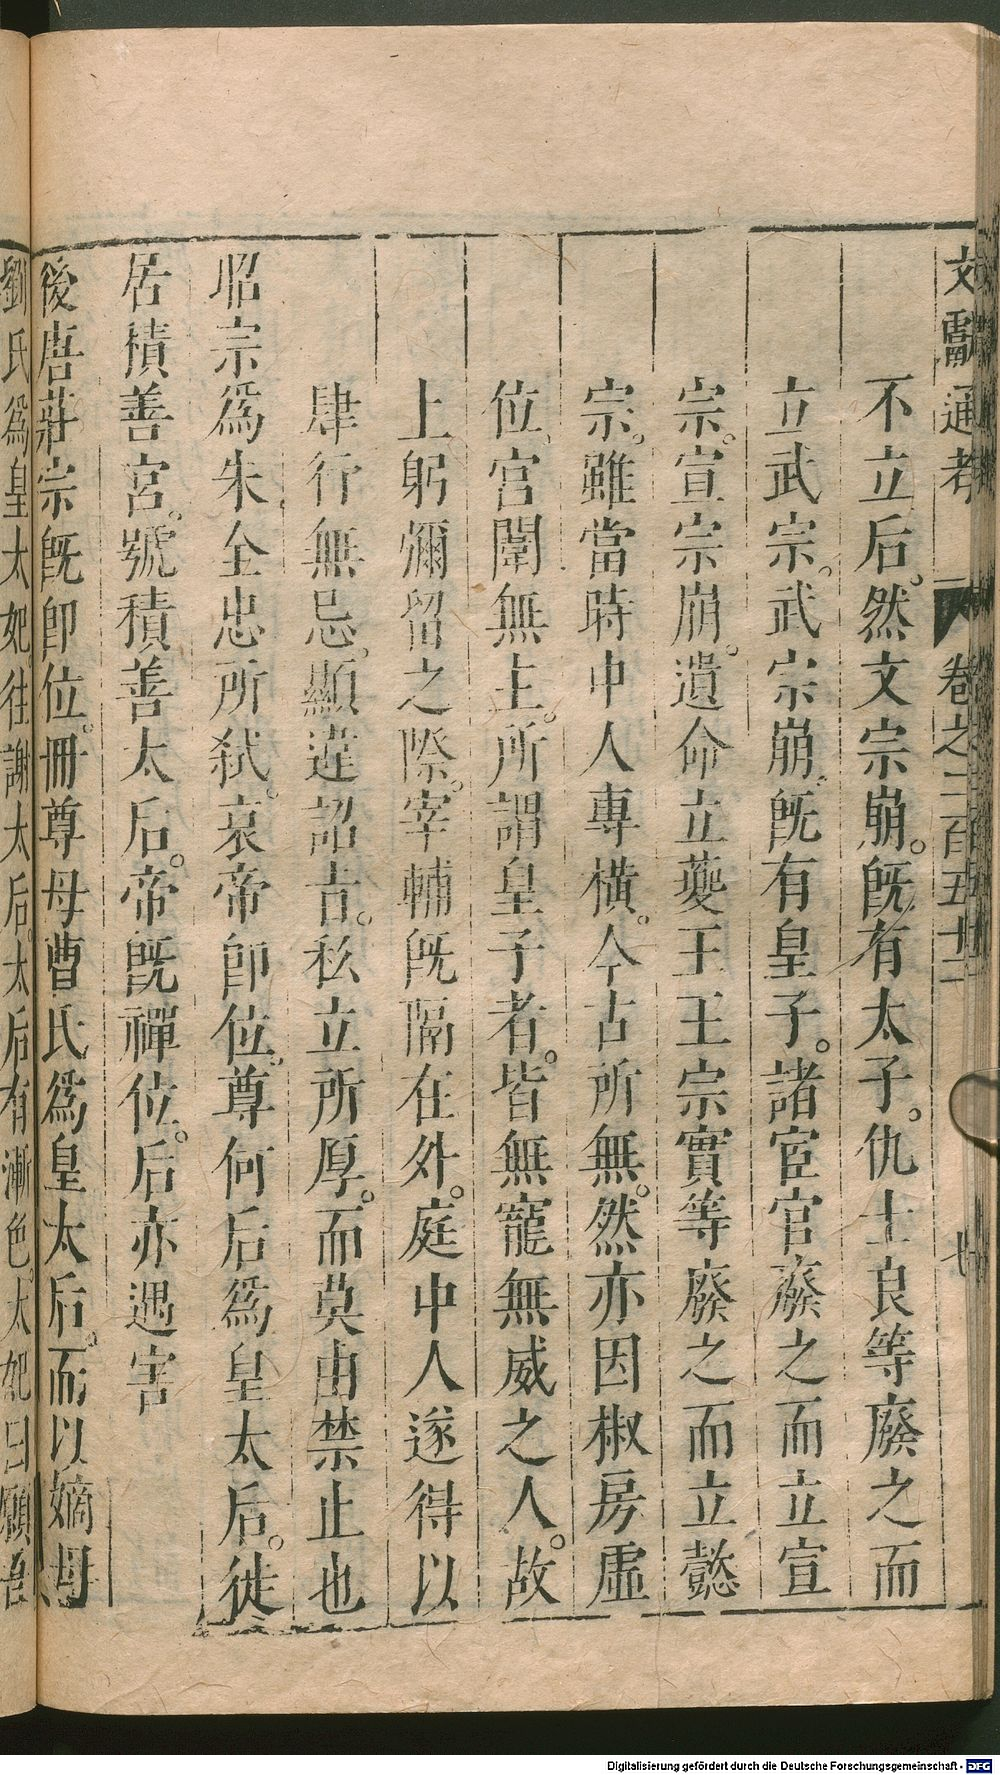 文獻通考 卷之二百五十二 七
不立后。然文宗崩。旣有太子。仇士良等廢之而
立武宗。武宗崩。旣有皇子。諸宦官廢之而立宣
宗。宣宗崩。遺命立夔王。王宗實等廢之而立懿
宗。雖當時中人專橫。今古所無。然亦因椒房虛
位、宮闈無主。所謂皇子者。皆無寵無威之人。故
上躬彌留之際。宰輔旣隔在外。庭中人遂得以
肆行無忌。顯違詔吉。私立所厚。而莫由禁止也
昭宗爲朱全忠所弑。哀帝卽位。尊何后爲皇太后。徙
居積善宮。號積善太后。帝旣禪位。后亦遇害
後唐莊宗旣卽位。冊尊母曹氏爲皇太后。而以嫡母
劉氏爲皇太妃。往謝太后。太后有漸色。太妃曰願吾
Digitalisierung gefördert durch die Deutsche Forschungsgemeinschaft - DFG